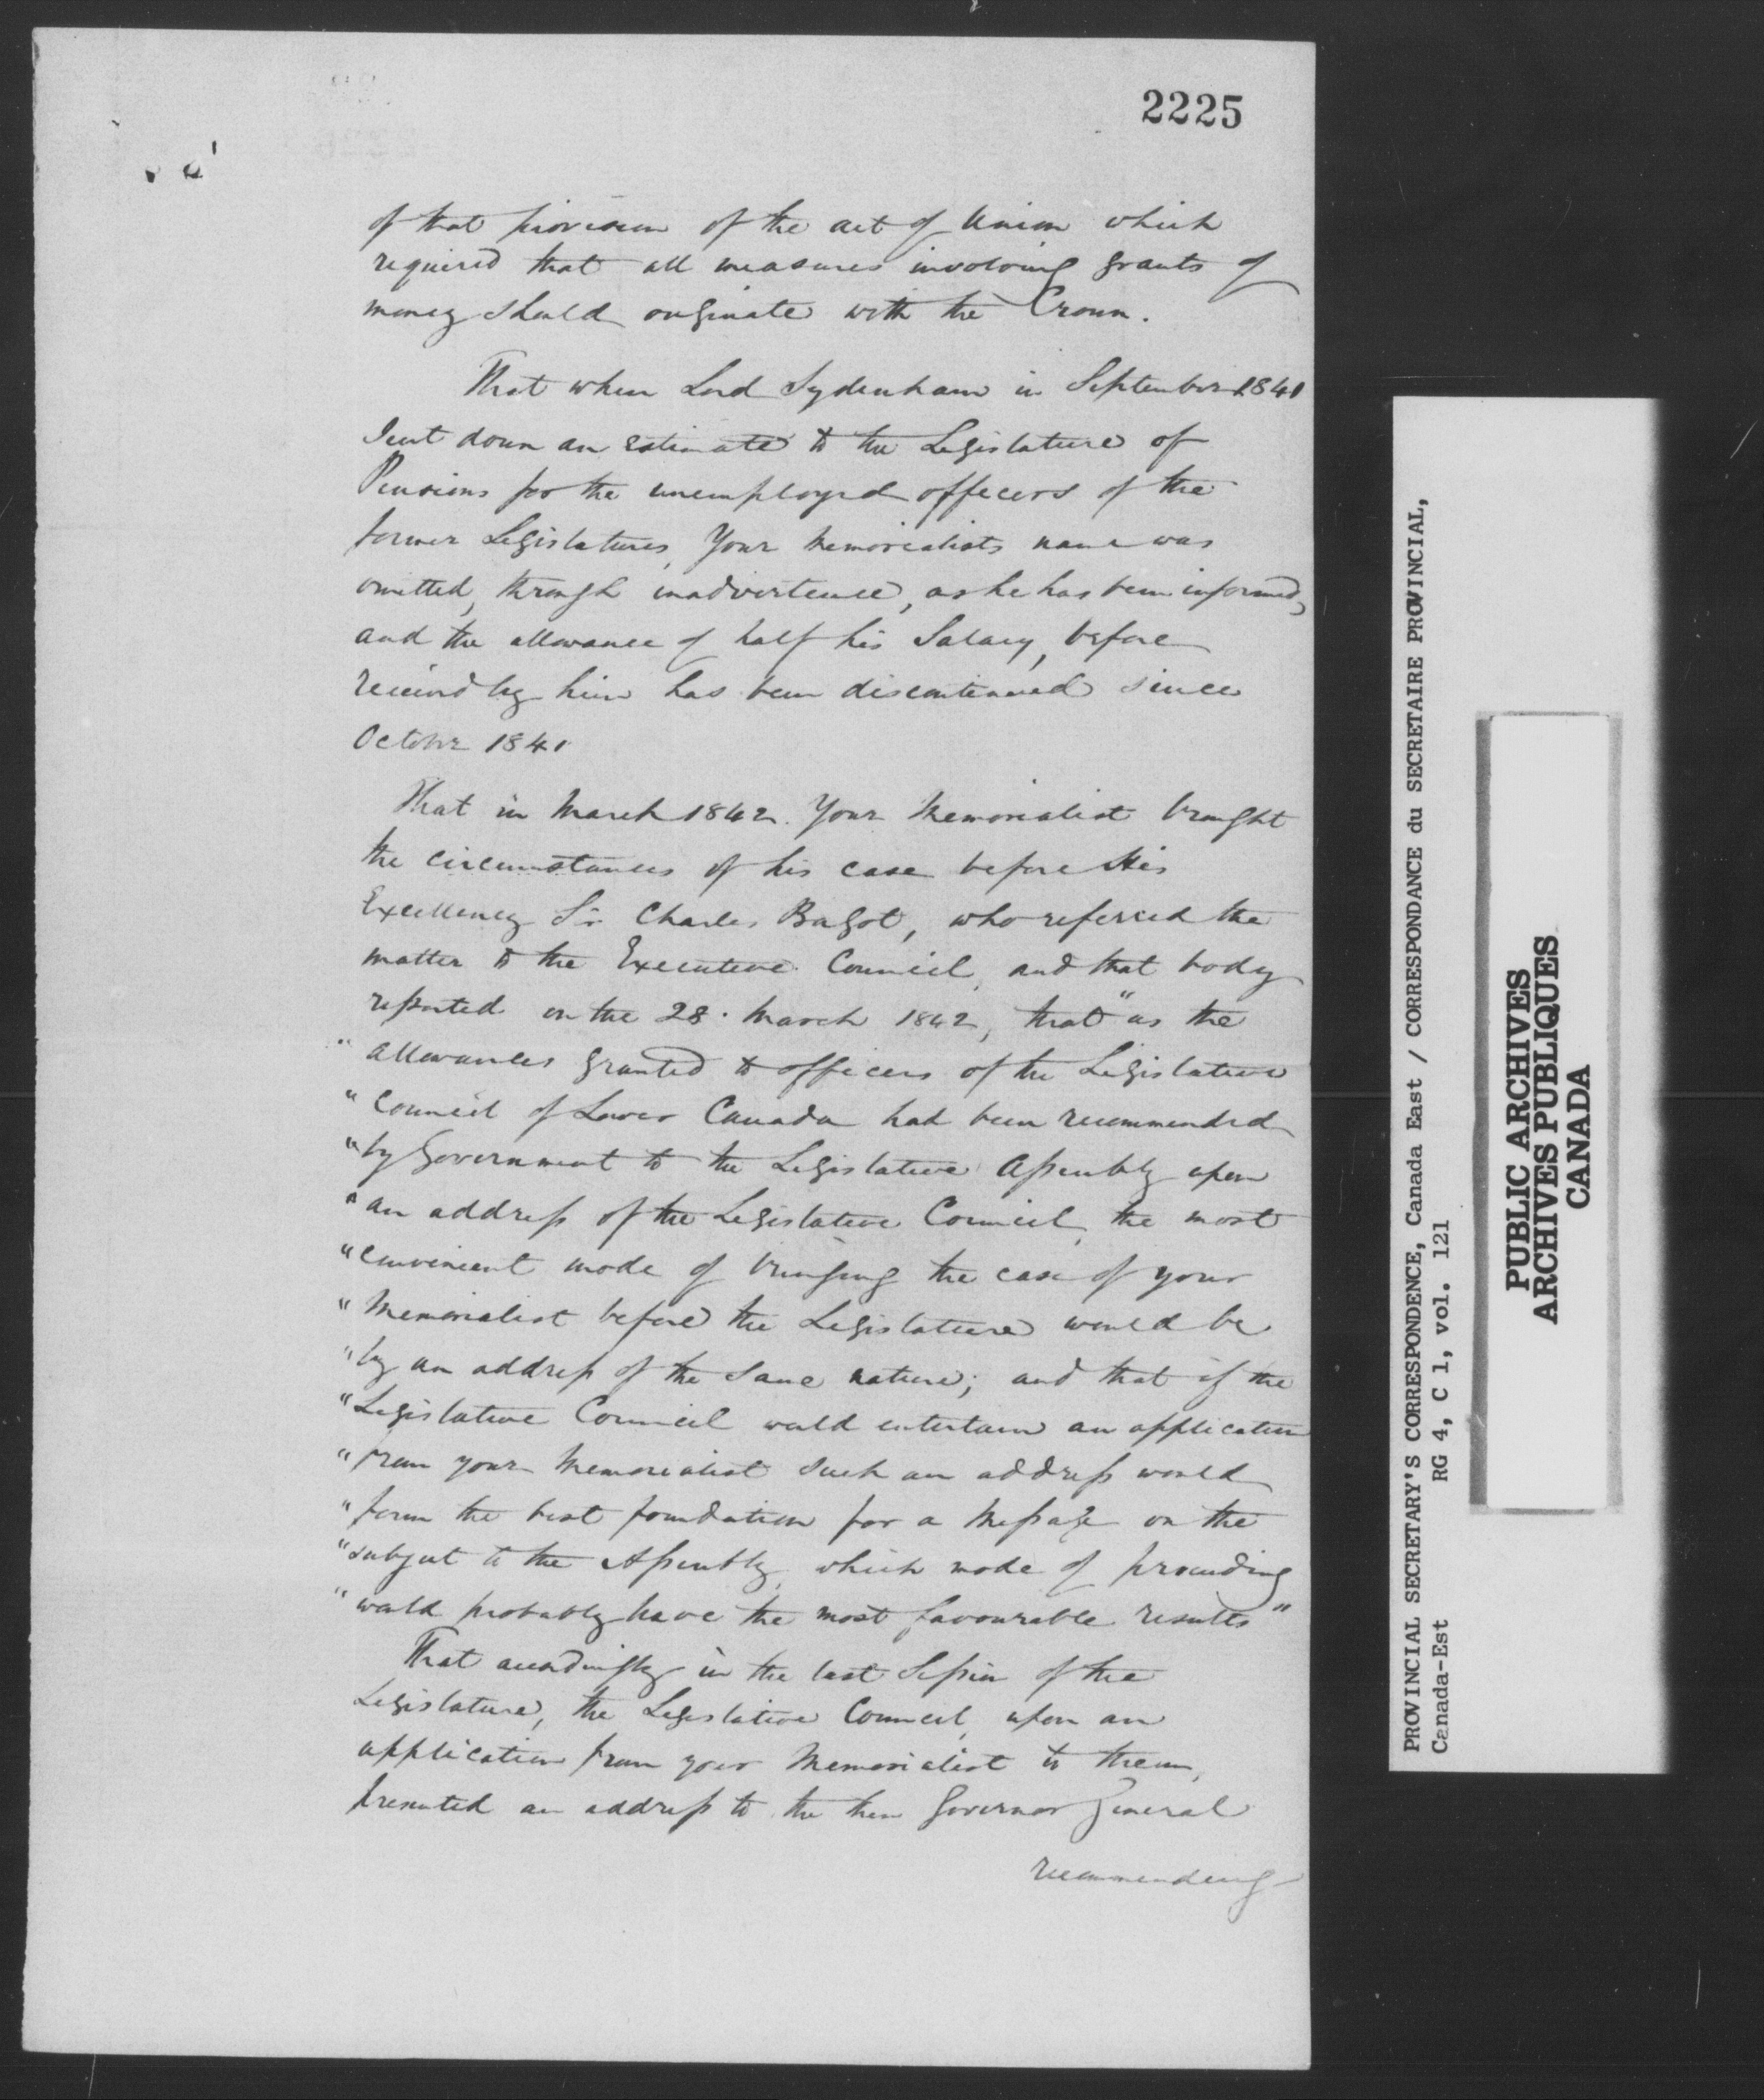 2225
of that provision of the act of Union which
required that all measures involving grants of
money should originate with the Crown.
That when Lord Sydenham in September 1841
Sent down an estimate to the Legislature of
Pensions for the unemployed officers of the
former Legislatures, Your Memorialists name was
omitted, through inadvertence, as he has been informed,
and the allowance of half his Salary, before
received by him has been discontinued since
October 1841
That in March 1842. Your Memorialist brought
the circumstances of his case before His
Excellency Sir Charles Bagot, who referred the
matter to the Executive Council, and that body
reported on the 28. March 1842, that "as the
"allowances granted to officers of the Legislative
"Council of Lower Canada had been recommended
"by Government to the Legislative Assembly upon
"an address of the Legislative Council, the most
"convenient mode of bringing the case of your
"Memorialist before the Legislature would be
"by an address of the same nature; and that if the
"Legislative Council would entertain an application
"from your Memorialist such an address would
"form the best foundation for a Message on the
"subject to the Assembly, which mode of proceeding
"would probably have the most favourable results"
That accordingly in the last Session of the
Legislature, the Legislative Council, upon an
application from your Memorialist to them,
presented an address to the then Governor General
recommending
PROVINCIAL SECRETARY'S CORRESPONDENCE, Canada East / CORRESPONDANCE du SECRETAIRE PROVINCIAL,
Canada-Est RG 4, C 1, vol. 121
PUBLIC ARCHIVES
ARCHIVES PUBLIQUES
CANADA